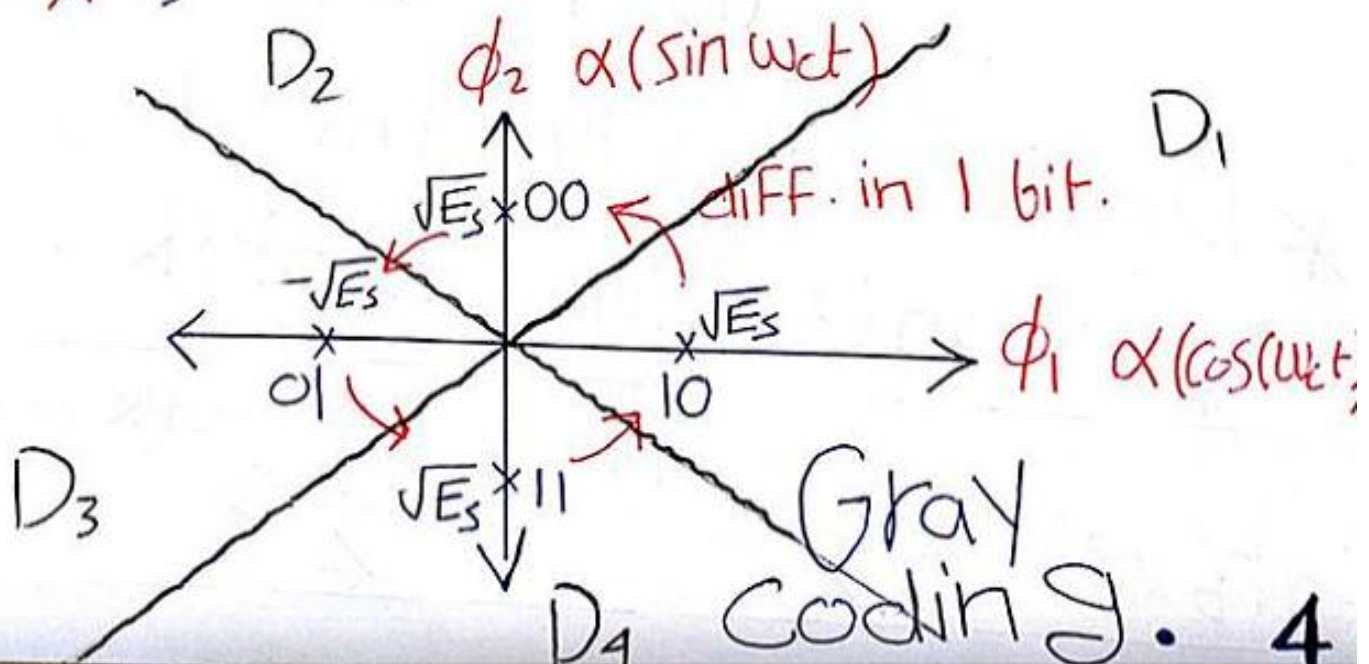 D₂ ϕ₂ α(sin ωct)
D₁
√Es 00 diff. in 1 bit.
-√Es √Es
ϕ₁ α(cos(ωct)
01 10
D₃ √Es 11
Gray
D₄ Coding. 4